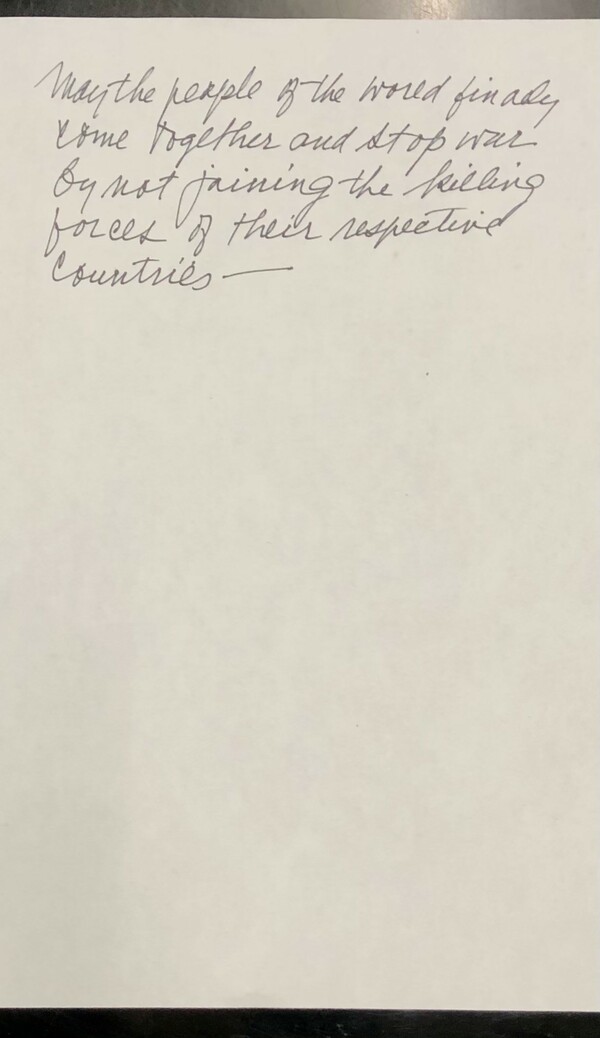 May the people of the world finally
come together and stop war
by not joining the killing
forces of their respective
Countries —